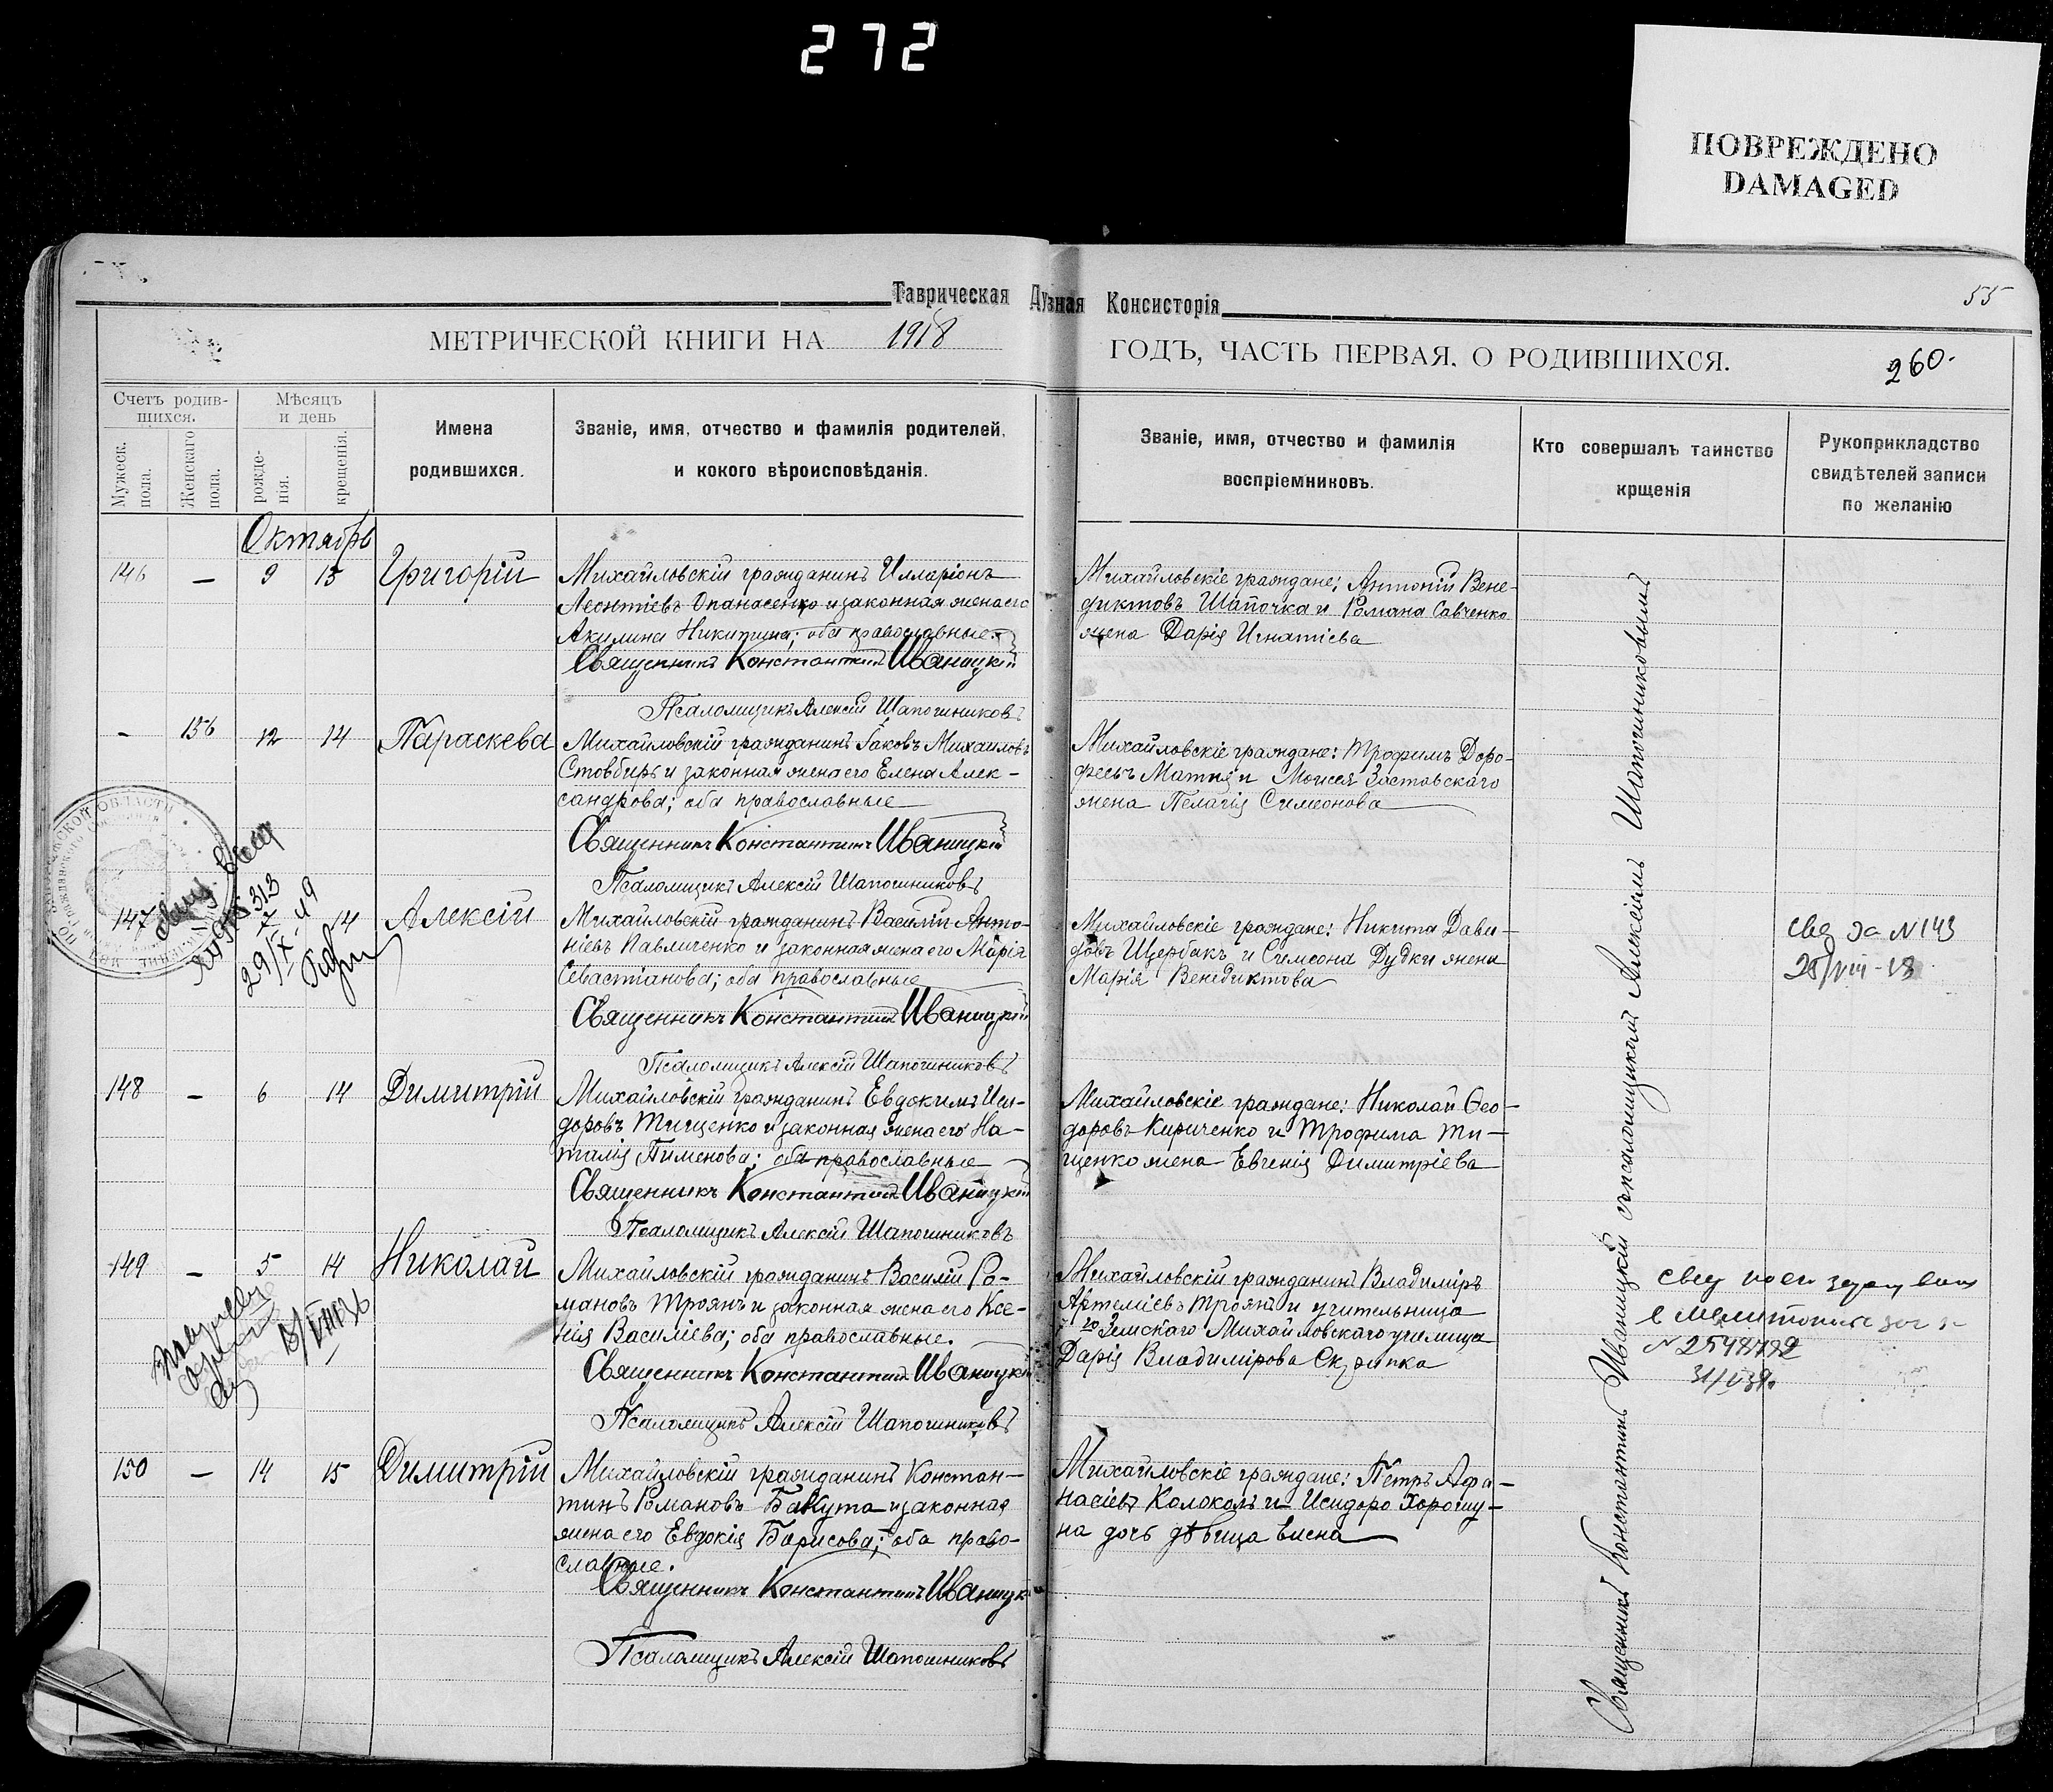 272
ПОВРЕЖДЕНО
DAMAGED
Таврическая Духовная Консисторія
55
МЕТРИЧЕСКОЙ КНИГИ НА 1918 ГОДЪ, ЧАСТЬ ПЕРВАЯ. О РОДИВШИХСЯ.
260.
Счетъ родившихся.
Мужеск. пола.
Женскаго пола.
Мѣсяцъ и день
рожденія.
крещенія.
Имена
родившихся.
Званіе, имя, отчество и фамилія родителей,
и кокого вѣроисповѣданія.
Званіе, имя, отчество и фамилія
воспріемниковъ.
Кто совершалъ таинство
крщенія
Рукоприкладство
свидѣтелей записи
по желанію
Октябрь
146 — 9 13 Григорій
Михайловскій гражданинъ Илларіонъ
Леонтіевъ Опанасенко и законная жена его
Акилина Никитина; оба православные.
Священникъ Константинъ Иваницкій
Псаломщикъ Алексій Шапошниковъ
Михайловскіе граждане: Антоній Вене-
диктовъ Шапочка и Романа Савченко
жена Дарія Игнатіева
- 136 12 14 Параскева
Михайловскій гражданинъ Іаковъ Михаиловъ
Стовбиръ и законная жена его Елена Алек-
сандрова; оба православные
Священникъ Константинъ Иваницкій
Псаломщикъ Алексій Шапошниковъ
Михайловскіе граждане: Трофимъ Доро-
феевъ Матня и Моисея Заставскаго
жена Пелагія Симеонова
147 14 Алексій
29/IX-49
Михайловскій гражданинъ Василій Анто-
ніевъ Павличенко и законная жена его Марія
Севастіанова; оба православные
Священникъ Константинъ Иваницкій
Псаломщикъ Алексій Шапошниковъ
Михайловскіе граждане: Никита Дави-
довъ Щербакъ и Симеона Дудки жена
Марія Венедиктова
свед за N 143
148 — 6 14 Димитрій
Михайловскій гражданинъ Евдокимъ Иси-
доровъ Тищенко и законная жена его На-
талія Пименова; оба православные
Священникъ Константинъ Иваницкій
Псаломщикъ Алексій Шапошниковъ
Михайловскіе граждане: Николай Ѳео-
доровъ Кириченко и Трофима Ти-
щенко жена Евгенія Димитріева
149 — 5 14 Николай
Михайловскій гражданинъ Василій Ро-
мановъ Троянъ и законная жена его Ксе-
нія Василіева; оба православные.
Священникъ Константинъ Иваницкій
Псаломщикъ Алексій Шапошниковъ
Михайловскій гражданинъ Владиміръ
Артеміевъ Троянъ и учительница
Земскаго Михайловскаго училища
Дарія Владимірова Скрипка
150 — 14 15 Димитрій
Михайловскій гражданинъ Констан-
тинъ Романовъ Бакута и законная
жена его Евдокія Борисова; оба право-
славные.
Священникъ Константинъ Иваницкій
Псаломщикъ Алексій Шапошниковъ
Михайловскіе граждане: Петръ Афа-
насіевъ Колоколъ и Исидора Хорошу-
на дочь дѣвица
Священникъ Константинъ Иваницкій съ псаломщикомъ Алексіемъ Шапошниковымъ